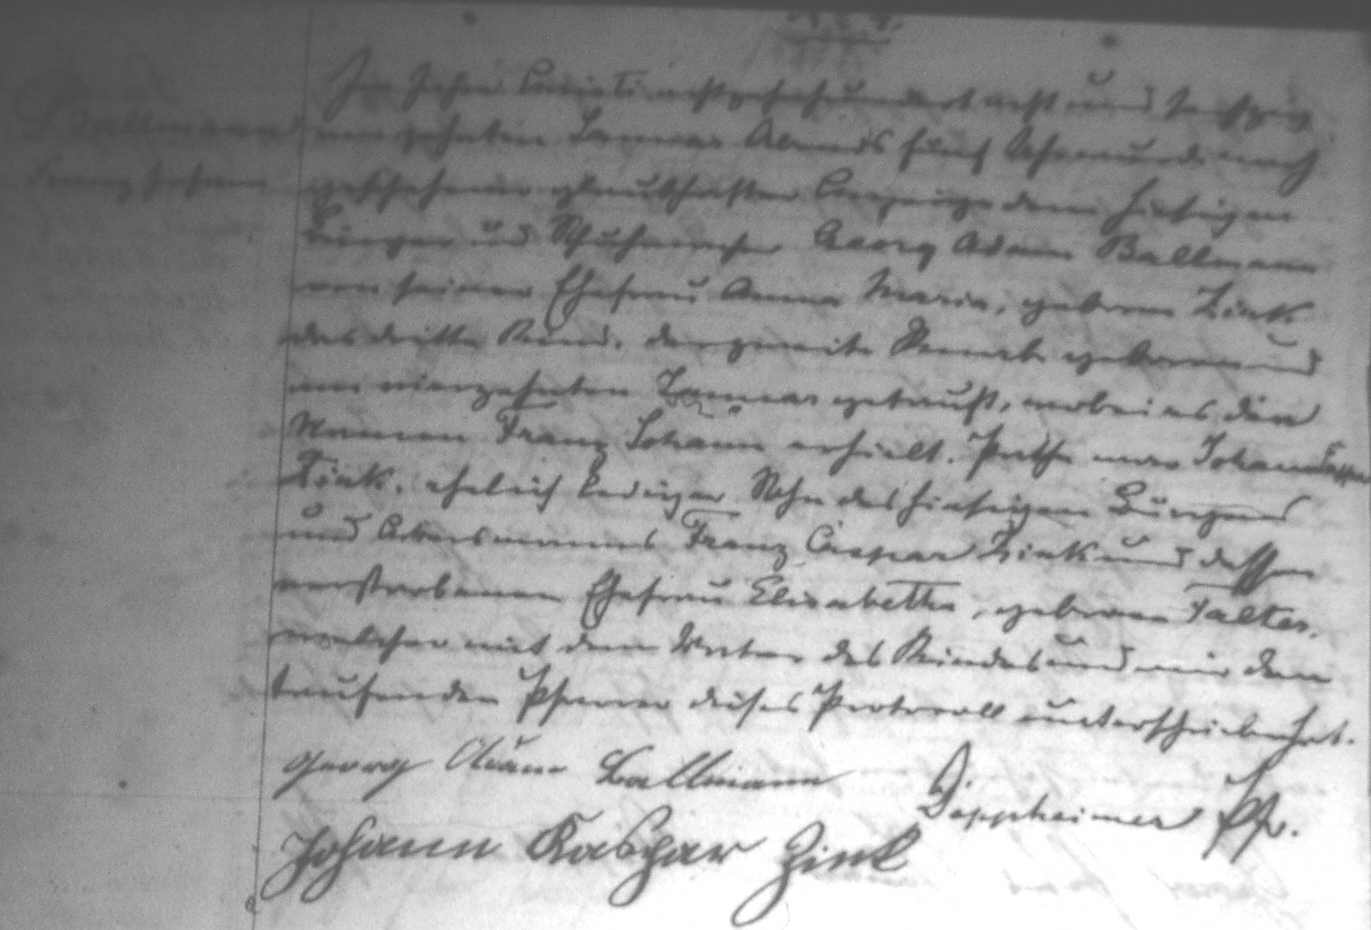 Ballmann
Franz Johann
Im Jahre Christi achtzehnhundert acht und sechzig
am zehnten Januar Abends fünf Uhr wurde nach
geschehener glaubhafter Anzeige dem hiesigen
Bürger und Schuhmacher Georg Adam Ballmann
von seiner Ehefrau Anna Maria, geborne Zink
das dritte Kind, der zweite Knabe geboren und
am vierzehnten Januar getauft, wobei es die
Namen Franz Johann erhielt. Pathe war Johann Caspar
Zink, ehelich lediger Sohn des hiesigen Bürgers
und Ackersmannes Franz Caspar Zink und dessen
verstorbenen Ehefrau Elisabetha, geborne Falter,
welcher mit dem Vater des Kindes und mir dem
taufenden Pfarrer dieses Protocoll unterschrieben hat.
Georg Adam Ballmann
Dippheimer Pfr.
Johann Kaspar Zink